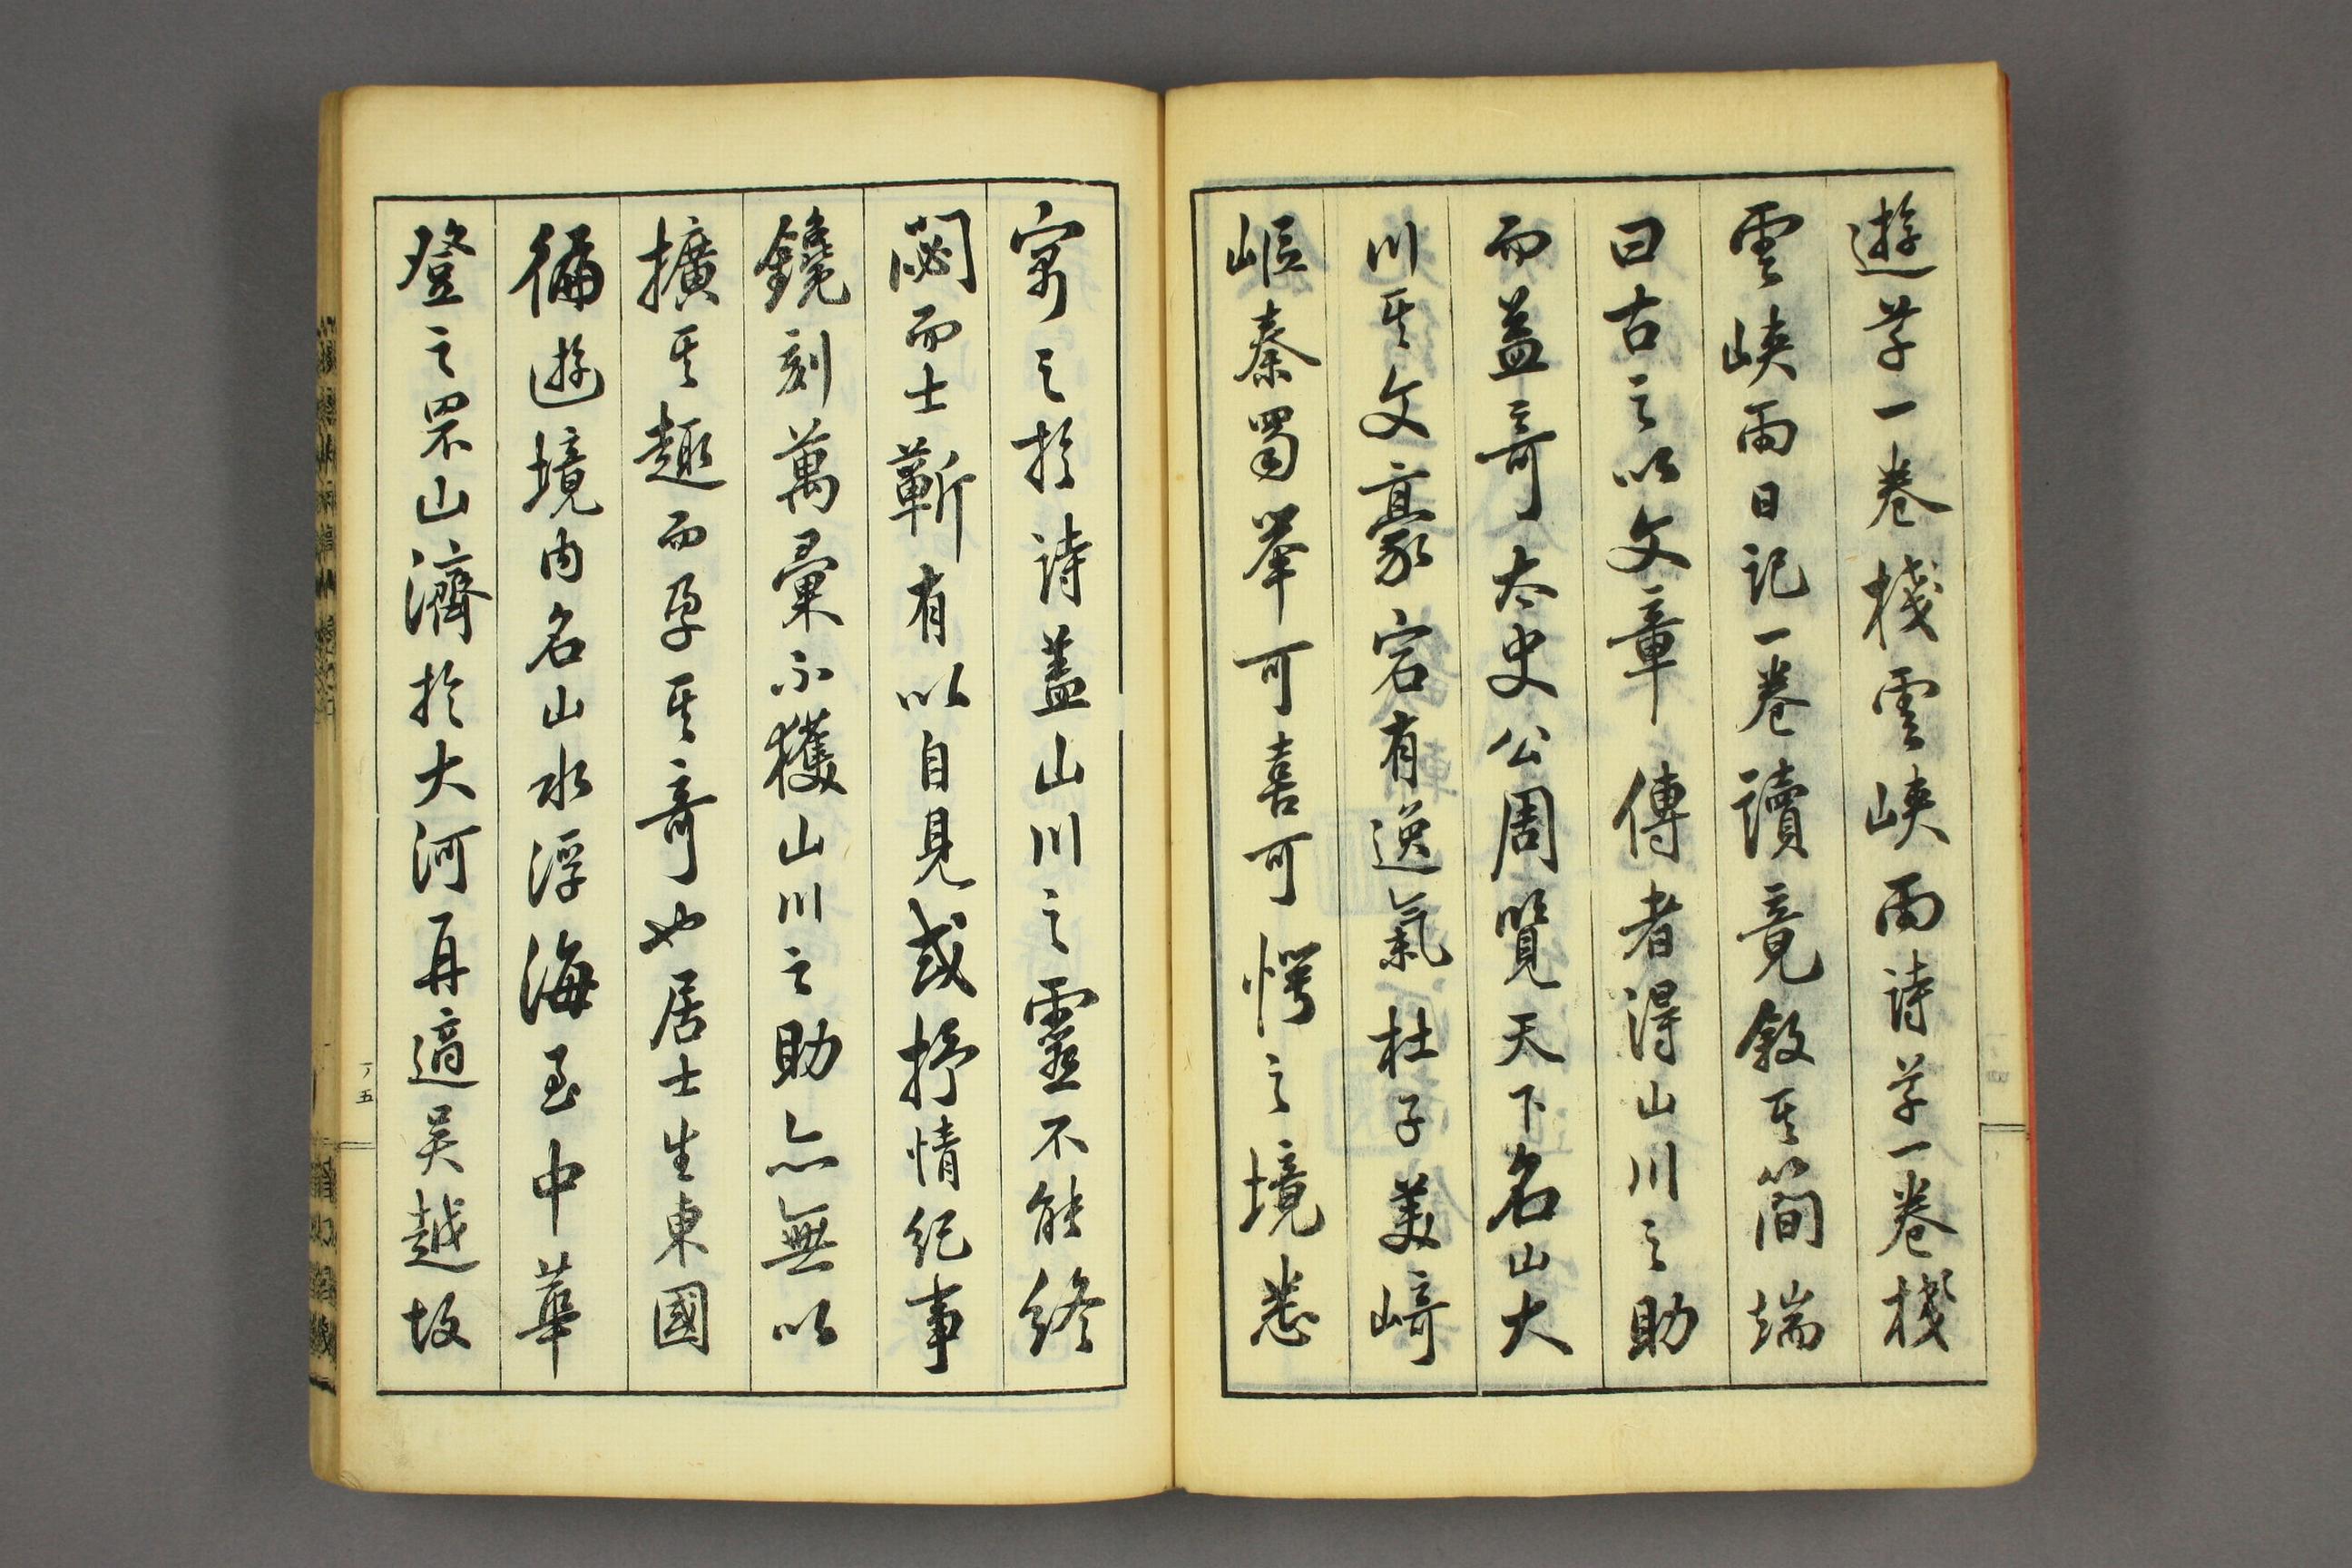 遊草一卷棧雲峽雨詩草一卷棧
雲峽雨日記一卷讀竟敘其簡端
曰古之以文章傳者得山川之助
而益奇太史公周覽天下名山大
川其文豪宕有逸氣杜子美崎
嶇秦蜀举可喜可愕之境悉
寓之於詩蓋山川之靈不能終
閟而士蘄有以自見或抒情紀事
鑱刻萬彙不獲山川之助亦無以
擴其趣而孕其奇也居士生東國
徧遊境内名山水浮海至中華
登之罘山濟於大河再適吳越故
五